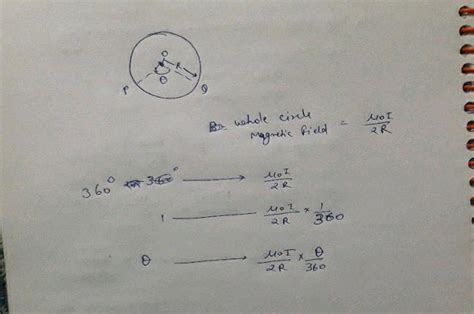 O
R
θ
P
Q
B= whole circle
Magnetic field = μ0I/2R
360° → μ0I/2R
1 → μ0I/2R × 1/360
θ → μ0I/2R × θ/360